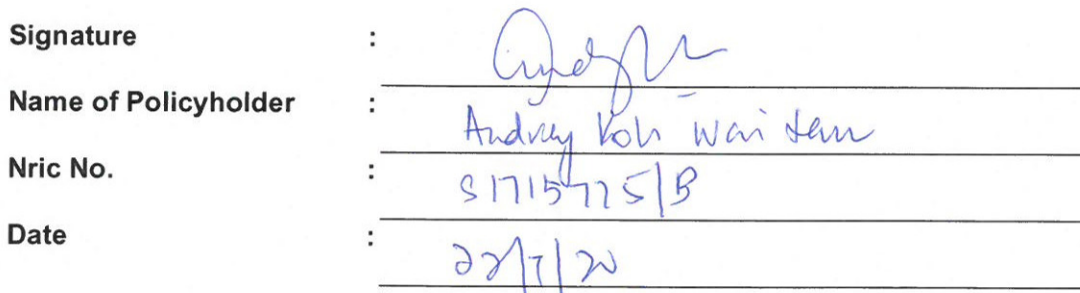 Signature :
Name of Policyholder : Andrew Koh Wai
Nric No. : S1715775/B
Date : 22/7/20